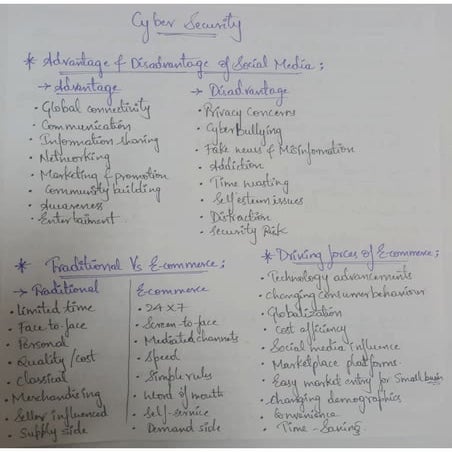 Cyber Security
* Advantage & Disadvantage of Social Media:
→ Advantage
• Global connectivity
• Communication
• Information sharing
• Networking
• Marketing & promotion
• Community building
• Awareness
• Entertaiment
→ Disadvantage
• Privacy concerns
• Cyberbullying
• Fake news & Misinfomation
• Addiction
• Time wasting
• Self estum issues
• Distraction
• Security Risk
* Traditional Vs E-commerce:
→ Traditional
• Limited time
• Face-to-face
• Personal
• Quality/cost
• Classical
• Merchandising
• Seller influenced
• Supply side
E-commerce
• 24 x 7
• Screen-to-face
• Mediated channels
• Speed
• Simple rules
• Word of mouth
• Self-service
• Demand side
* Driving forces of E-commerce:
• Technology advancements
• Changing consumer behaviour
• Globalization
• Cost efficiency
• Social media influence
• Marketplace platforms
• Easy market entry for Small
• Changing demographics
• Convenience
• Time-Saving.